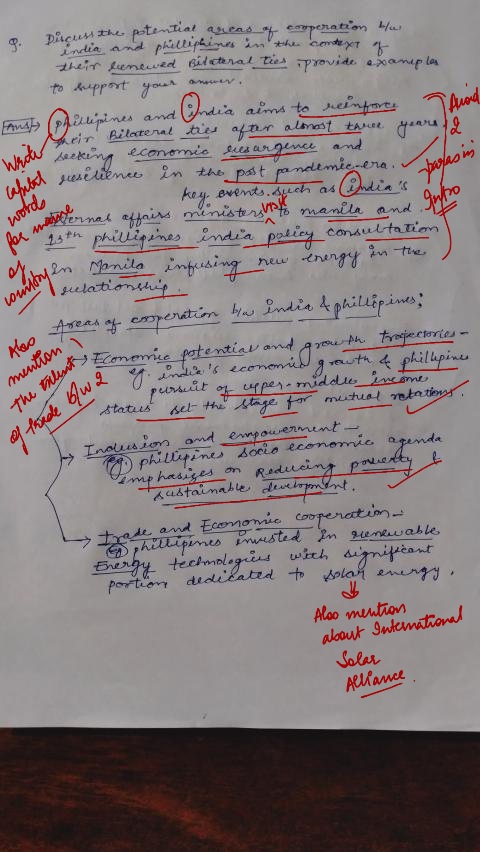 Q. Discuss the potential areas of cooperation b/w
india and philliphines in the context of
their renewed Bilateral ties, provide examples
to support your answer.
Ans→ phillipines and india aims to reinforce
their Bilateral ties after almost three years
seeking economic resurgence and
resilience in the post pandemic era.
key events such as india's
External affairs ministers visit to manila and
13th phillipines india policy consultation
in Manila infusing new energy in the
relationship.
Avoid
2
paras in
Intro
Write
capital
words
for name
of
country
Areas of cooperation b/w india & phillipines;
→ Economic potential and growth trajectories -
eg. india's economic growth & phillipines
pursuit of upper-middle income
status set the stage for mutual relations.
Also
mention
the extent
of trade b/w 2
→ Inclusion and empowerment -
eg. phillipines socio economic agenda
emphasizes on Reducing poverty &
sustainable development.
→ Trade and Economic cooperation -
eg phillipines invested in renewable
Energy technologies with significant
portion dedicated to solar energy.
Also mention
about International
Solar
Alliance.